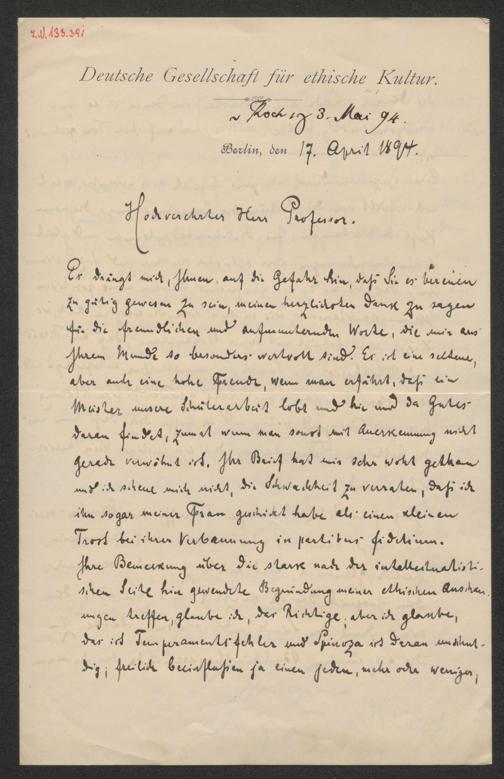 I.N. 133.391
Deutsche Gesellschaft für ethische Kultur.
3. Mai 94.
Berlin, den 17. April 1894.
Hochverehrter Herr Professor.
Es drängt mich, Ihnen auf die Gefahr hin, daß Sie es bereuen
zu gütig gewesen zu sein, meinen herzlichsten Dank zu sagen
für die freundlichen und aufmunternden Worte, die mir aus
Ihrem Munde so besonders wertvoll sind. Es ist eine seltene,
aber auch eine hohe Freude, wenn man erfährt, daß ein
Meister unsere Schülerarbeit lobt und hie und da Gutes
daran findet, zumal wenn man sonst mit Anerkennung nicht
gerade verwöhnt ist. Ihr Brief hat mir sehr wohl gethan
und ich scheue mich nicht, die Schwachheit zu verraten, daß ich
ihn sogar meiner Frau geschickt habe als einen kleinen
Trost bei ihrer Verbannung in partibus fidelium.
Ihre Bemerkung über die stark nach der intellektualisti-
schen Seite hin gewendete Begründung meiner ethischen Anschau-
ungen treffen, glaube ich, das Richtige; aber ich glaube,
das ist Temperamentsfehler und Spinoza ist daran unschul-
dig; freilich beeinflußen ja einen jeden, mehr oder weniger,